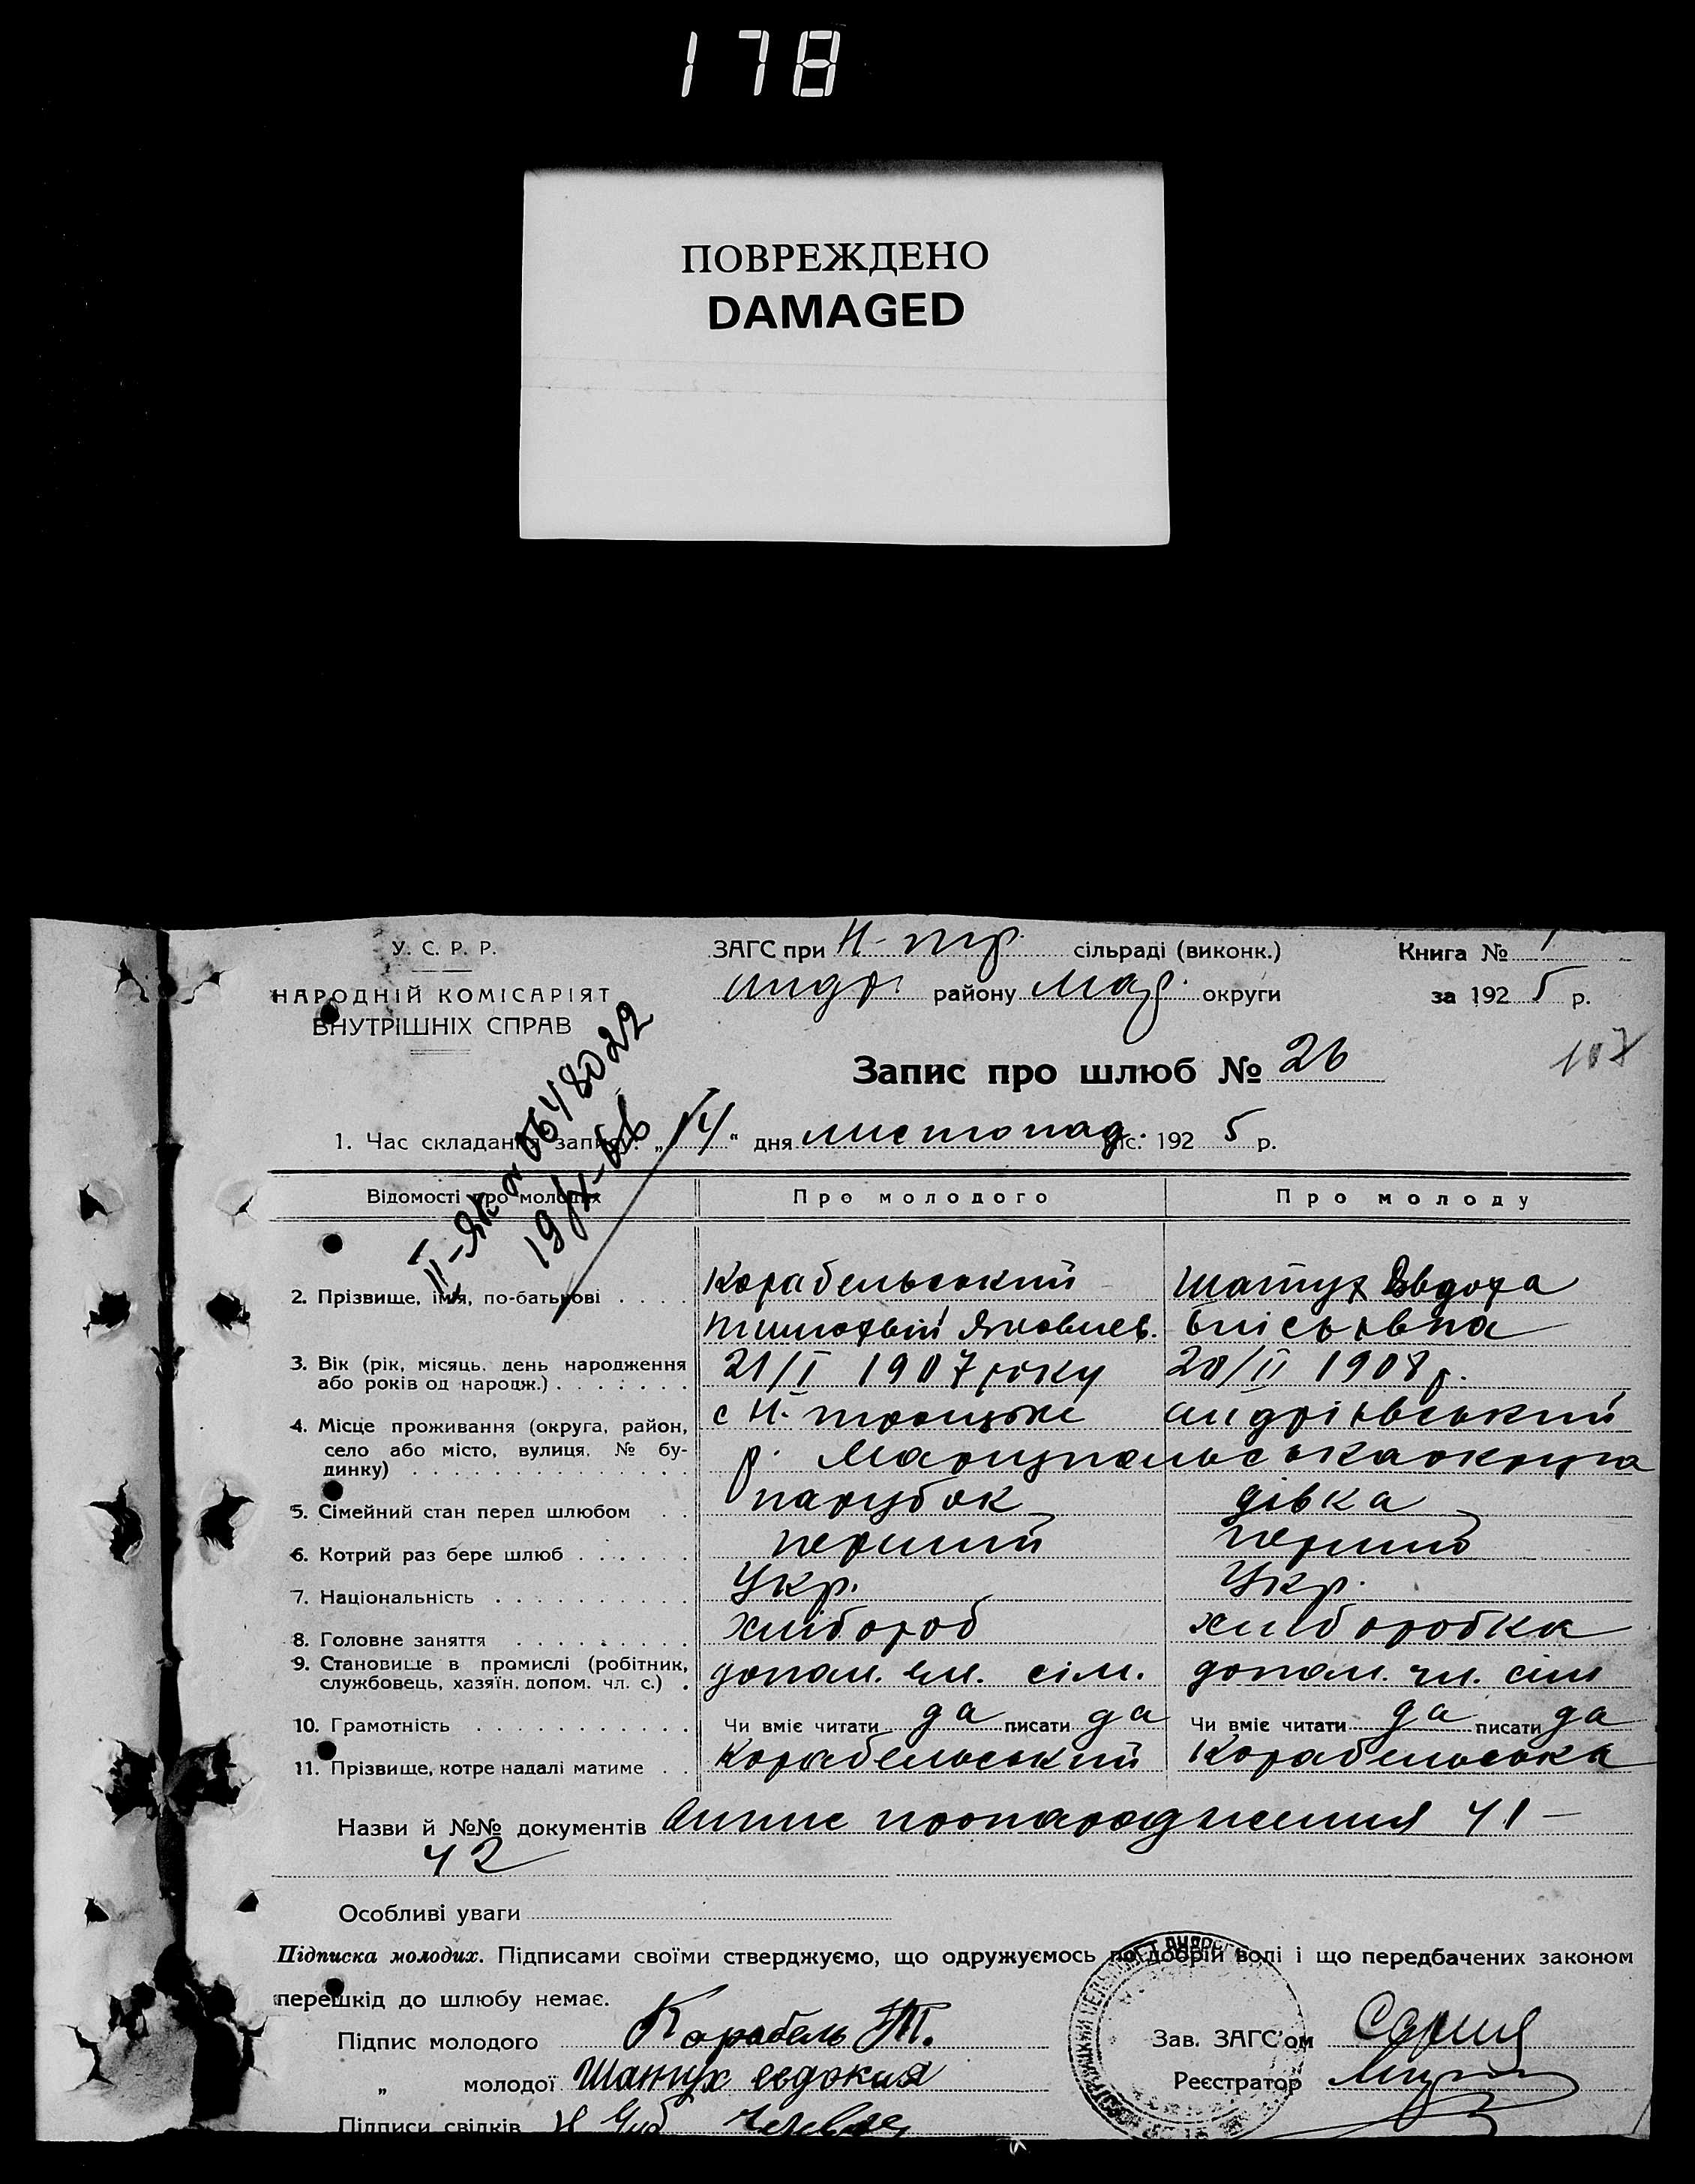 178
ПОВРЕЖДЕНО
DAMAGED
У. С. Р. Р.
НАРОДНІЙ КОМІСАРІЯТ
ВНУТРІШНІХ СПРАВ
ЗАГС при Н-тр. сільраді (виконк.)
Андр. району Мар. округи
Книга № 1
за 1925 р.
107
Запис про шлюб № 26
1. Час складання запису: „14“ дня листопад. міс. 1925 р.
Відомості про молодих Про молодого Про молоду
2. Прізвище, імя, по-батькові Корабельський Шатух Овдоха
Тимофвій Яковлев.
3. Вік (рік, місяць, день народження або років од народж.) 21/I 1907 року 20/II 1908 р.
4. Місце проживання (округа, район, село або місто, вулиця, № будинку) с Н. троицьке Андріівський
р. Маріупольська округа
5. Сімейний стан перед шлюбом парубок дівка
6. Котрий раз бере шлюб перший перший
7. Національність Укр. Укр.
8. Головне заняття хлібороб хліборобка
9. Становище в промислі (робітник, службовець, хазяїн, допом. чл. с.) допом. чл. сім. допом. чл. сім
10. Грамотність Чи вміє читати да писати да Чи вміє читати да писати да
11. Прізвище, котре надалі матиме Корабельський Корабельська
Назви й №№ документів пронародження 41-
42
Особливі уваги
Підписка молодих. Підписами своїми стверджуємо, що одружуємось по добрій волі і що передбачених законом
перешкід до шлюбу немає.
Підпис молодого Корабель Т.
„ молодої Шатух евдокия
Зав. ЗАГС'ом
Реєстратор
Підписи свідків